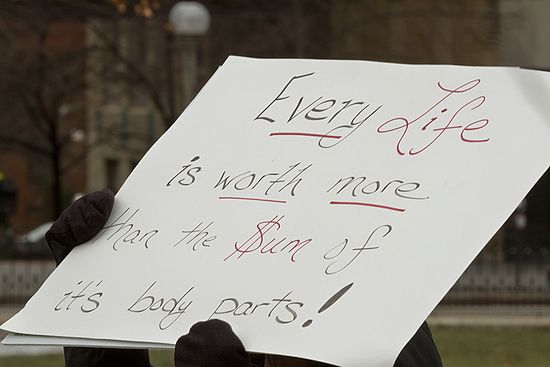 Every Life
is worth more
than the $um of
it's body parts!